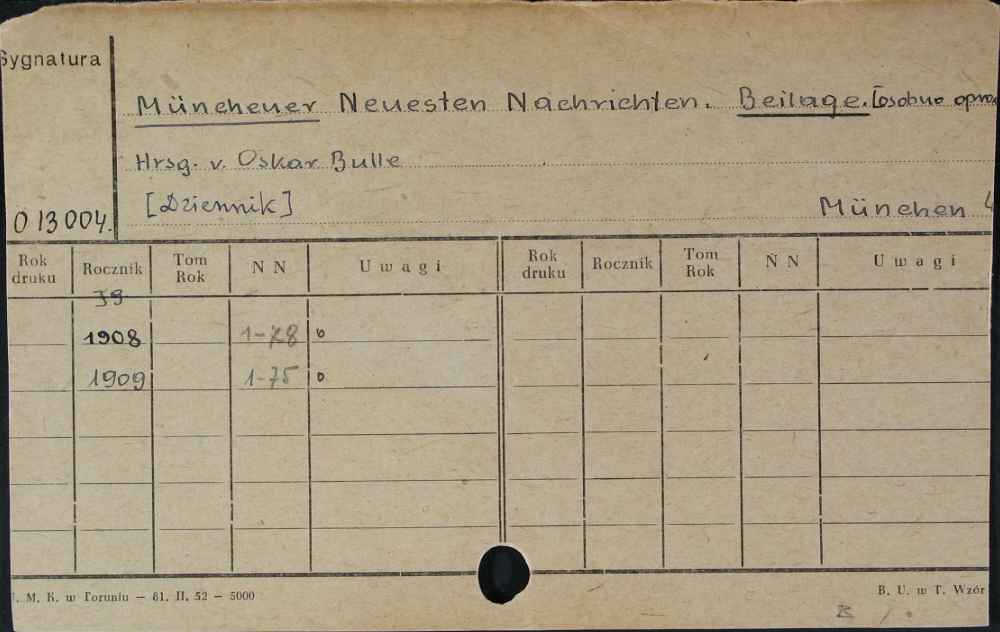 Sygnatura
Münchener Neuesten Nachrichten. Beilage. [osobno opra
Hrsg. v. Oskar Bulle
[Dziennik]
München 4
O 13004.
Rok druku Rocznik Tom Rok NN Uwagi Rok druku Rocznik Tom Rok NN Uwagi
1908 1-78 o
1909 1-75 o
. M. K. w Toruniu — 61. II. 52 — 5000
B. U. w T. Wzór